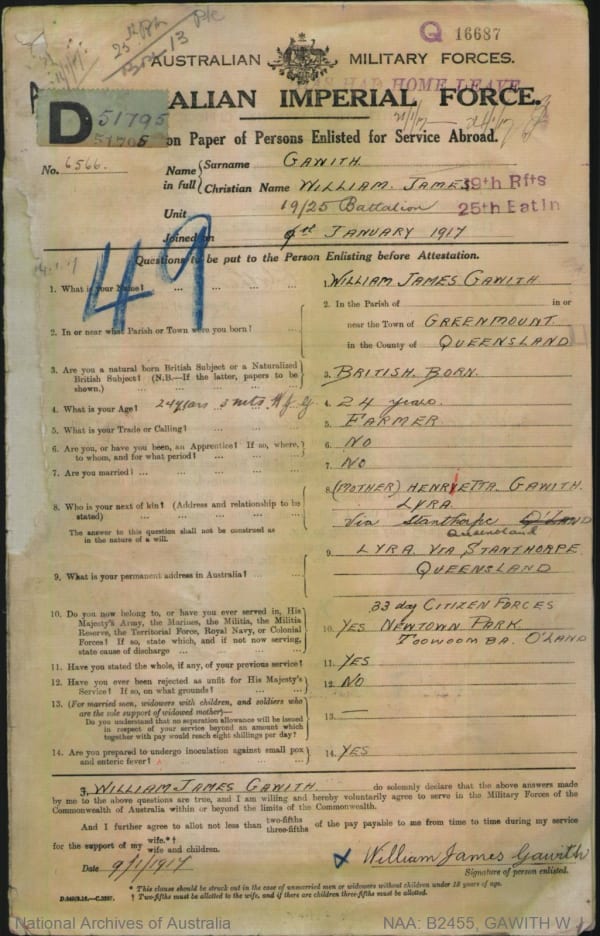 25th Btn
Q 16687
AUSTRALIAN MILITARY FORCES.
HAD HOME LEAVE
ALIAN IMPERIAL FORCE.
D 51795
51795
on Paper of Persons Enlisted for Service Abroad.
No. 6566.
Name in full
Surname GAWITH
Christian Name WILLIAM JAMES
19th Rfts
Unit 19/25 Battalion
25th Batln
Joined on JANUARY 1917
49
Questions to be put to the Person Enlisting before Attestation.
1. What is your Name? ... ... ... ...
WILLIAM JAMES GAWITH
2. In or near what Parish or Town were you born? ...
2. In the Parish of in or
near the Town of GREENMOUNT
in the County of QUEENSLAND
3. Are you a natural born British Subject or a Naturalized
British Subject? (N.B.—If the latter, papers to be
shown.) ... ... ... ...
3. BRITISH BORN.
4. What is your Age? 24 years 3 mts W.J.G.
4. 24 years.
5. What is your Trade or Calling? ... ... ...
5. FARMER
6. Are you, or have you been, an Apprentice? If so, where,
to whom, and for what period? ... ... ...
6. NO
7. Are you married? ... ... ... ...
7. NO
8. Who is your next of kin? (Address and relationship to be
stated) ... ... ... ...
The answer to this question shall not be construed as
in the nature of a will.
8. (MOTHER) HENRYETTA GAWITH.
LYRA.
Via Stanthorpe Q'LAND
Queensland
9. What is your permanent address in Australia? ...
9. LYRA VIA STANTHORPE
QUEENSLAND
10. Do you now belong to, or have you ever served in, His
Majesty's Army, the Marines, the Militia, the Militia
Reserve, the Territorial Force, Royal Navy, or Colonial
Forces? If so, state which, and if not now serving,
state cause of discharge ... ... ...
33 day CITIZEN FORCES
10. YES NEWTOWN PARK
TOOWOOMBA. Q'LAND
11. Have you stated the whole, if any, of your previous service?
11. YES
12. Have you ever been rejected as unfit for His Majesty's
Service? If so, on what grounds? ... ... ...
12. NO
13. (For married men, widowers with children, and soldiers who
are the sole support of widowed mother)—
Do you understand that no separation allowance will be issued
in respect of your service beyond an amount which
together with pay would reach eight shillings per day?
13. —
14. Are you prepared to undergo inoculation against small pox
and enteric fever? ... ... ... ...
14. YES
I, WILLIAM JAMES GAWITH. do solemnly declare that the above answers made
by me to the above questions are true, and I am willing and hereby voluntarily agree to serve in the Military Forces of the
Commonwealth of Australia within or beyond the limits of the Commonwealth.
And I further agree to allot not less than two-fifths three-fifths of the pay payable to me from time to time during my service
for the support of my wife.*† wife and children.
Date 9/1/1917
x William James Gawith
Signature of person enlisted.
* This clause should be struck out in the case of unmarried men or widowers without children under 18 years of age.
† Two-fifths must be allotted to the wife, and if there are children three-fifths must be allotted.
National Archives of Australia
NAA: B2455, GAWITH W J